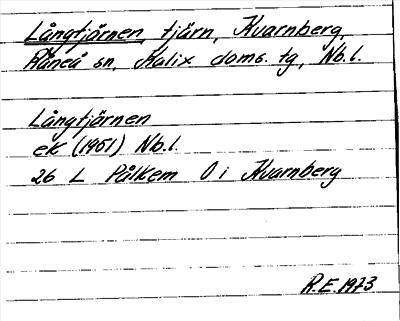 Långtjärnen, tjärn, Kvarnberg,
Råneå sn, Kalix doms. tg, Nb.l.
Långtjärnen
ek (1951) Nb.l.
26 L Pålkem O i Kvarnberg
R.E. 1973